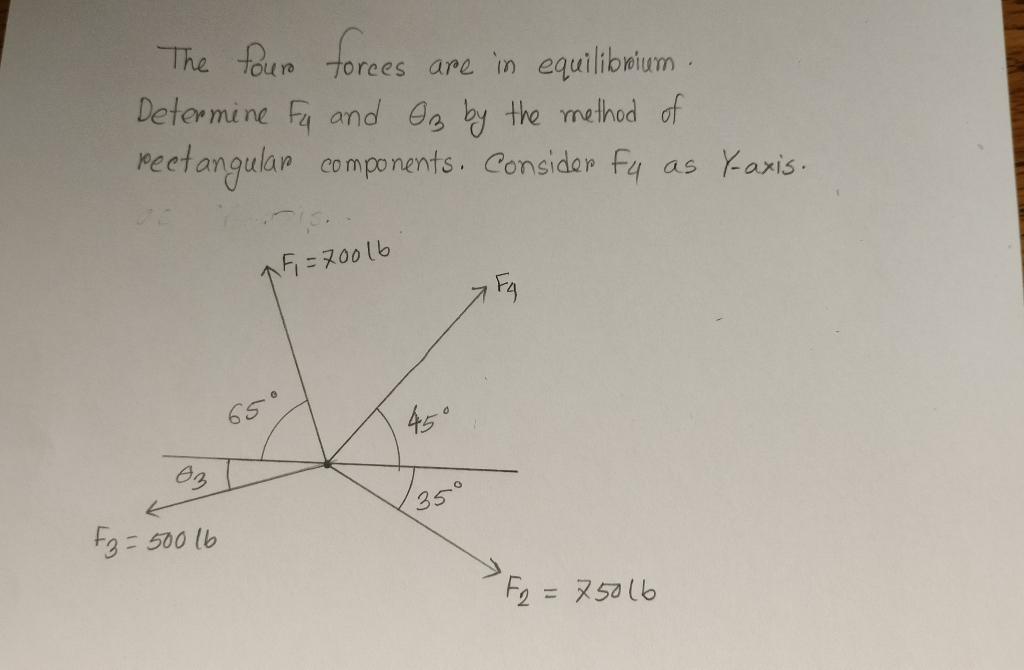 The four forces are in equilibrium.
Determine F4 and θ3 by the method of
rectangular components. Consider F4 as Y-axis.
F1 = 700 lb
F4
65°
45°
θ3
35°
F3 = 500 lb
F2 = 750 lb